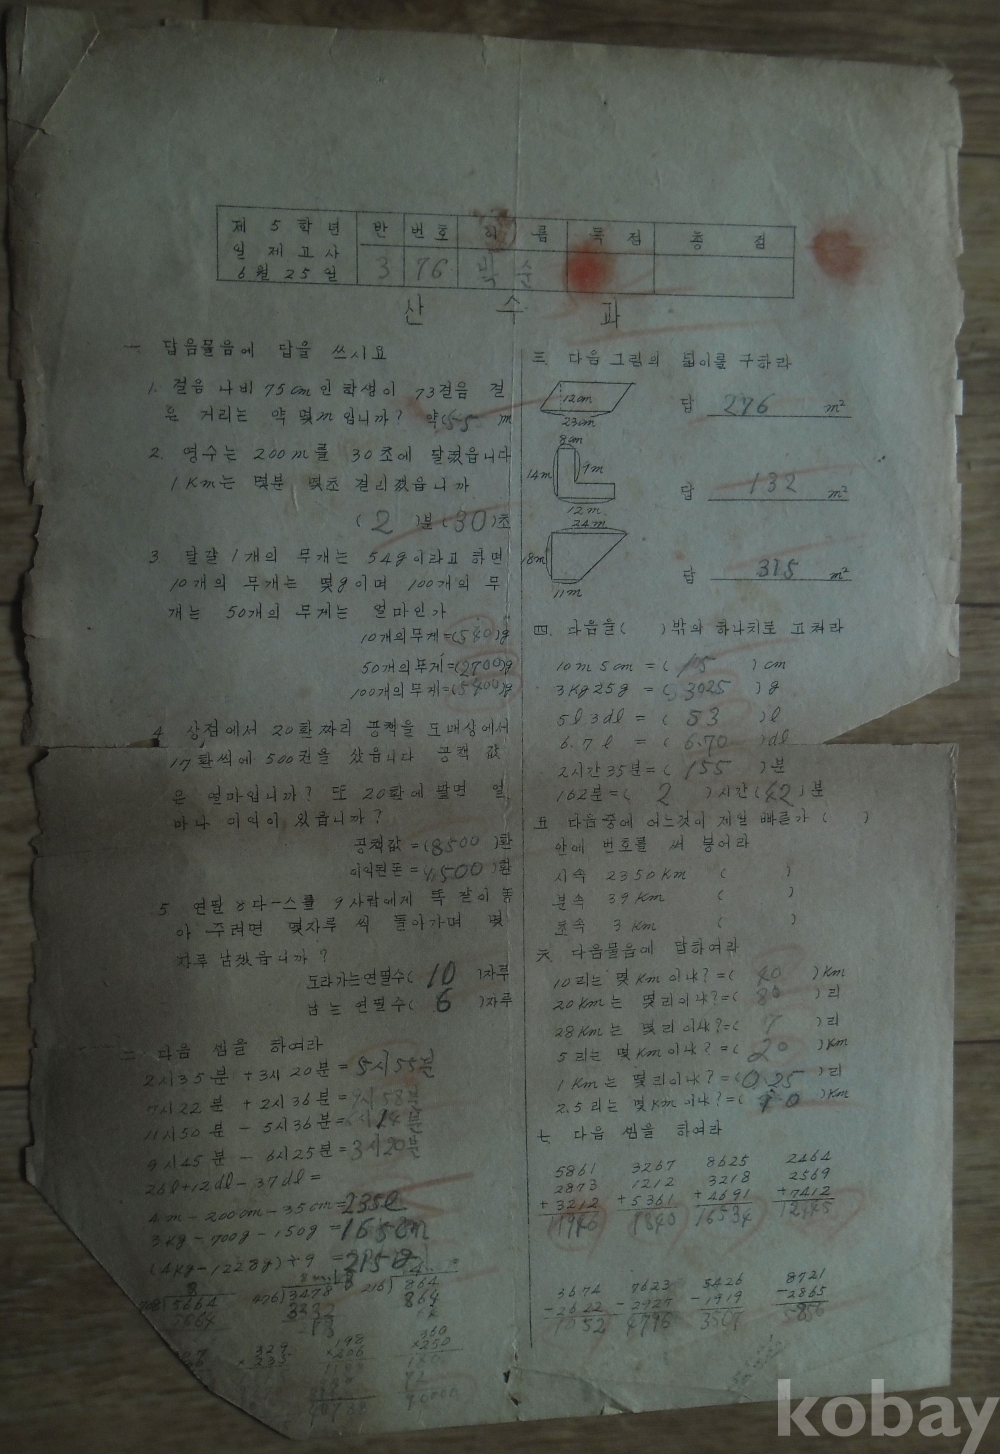 제 5 학년
일제고사
6월 25일
반 번호 이름 득점 총점
3 76 박 순
산수과
一 답음물음에 답을 쓰시요
1. 걸음 나비 75cm인 학생이 73걸음 걸
은 거리는 약 몇m입니까? 약(55)m
2. 영수는 200m를 30초에 달렸읍니다
1Km는 몇분 몇초 걸리겠읍니까
(2)분(30)초
3 달갈 1개의 무개는 54g이라고 하면
10개의 무개는 몇g이며 100개의 무
개는 50개의 무게는 얼마인가
10개의무게=(540)g
50개의무게=(2700)g
100개의무게=(5400)g
4 상점에서 20환짜리 공책을 도매상에서
17환씩에 500권을 샀읍니다 공책 값
은 얼마입니까? 또 20환에 팔면 얼
마나 이익이 있읍니까?
공책값=(8500)환
이익된돈=(1,500)환
5 연필 8다-스를 9사람에게 똑 같이 농
아 주려면 몇자루 씩 돌아가며 몇
자루 남겠읍니까?
도라가는연필수(10)자루
남는연필수(6)자루
二 다음 셈을 하여라
2시35분 +3시20분=5시55분
7시22분 +2시36분=9시58분
11시50분 - 5시36분=6시14분
9시45분 - 6시25분=3시20분
26l+12dl-37dl=
4m-200cm-35cm=235l
3Kg-700g-150g=165cm
(4Kg-1228g)÷9 =215g
5664
3478
216)864
864
三 다음 그림의 넓이를 구하라
12cm
23cm
답 276 m²
8cm
14m 9m
12m
답 132 m²
24m
18m
11m
답 315 m²
四. 다음을( )밖의 하나치로 고쳐라
10m5cm=(15)cm
3Kg25g=(3025)g
5l3dl=(53)l
6.7l=(6.70)dl
2시간35분=(155)분
162분=(2)시간(42)분
五 다음중에 어느것이 제일 빠른가( )
안에 번호를 써 붕어라
시속 2350Km ( )
분속 39Km ( )
초속 3Km ( )
六. 다음물음에 답하여라
10리는 몇Km이냐?=(40)Km
20Km는 몇리이냐?=(80)리
28Km는 몇리이냐?=(7)리
5리는 몇Km이냐?=(20)Km
1Km는 몇리이냐?=(0.25)리
2.5리는 몇Km이냐?=(10)Km
七 다음 셈을 하여라
5861 3267 8625 2464
2873 1212 3218 2569
+3212 +5361 +4691 +7412
11946 9840 16534 12445
3674 7623 5426 8721
-2622 -2927 -1919 -2865
1052 4796 3507 5856
kobay